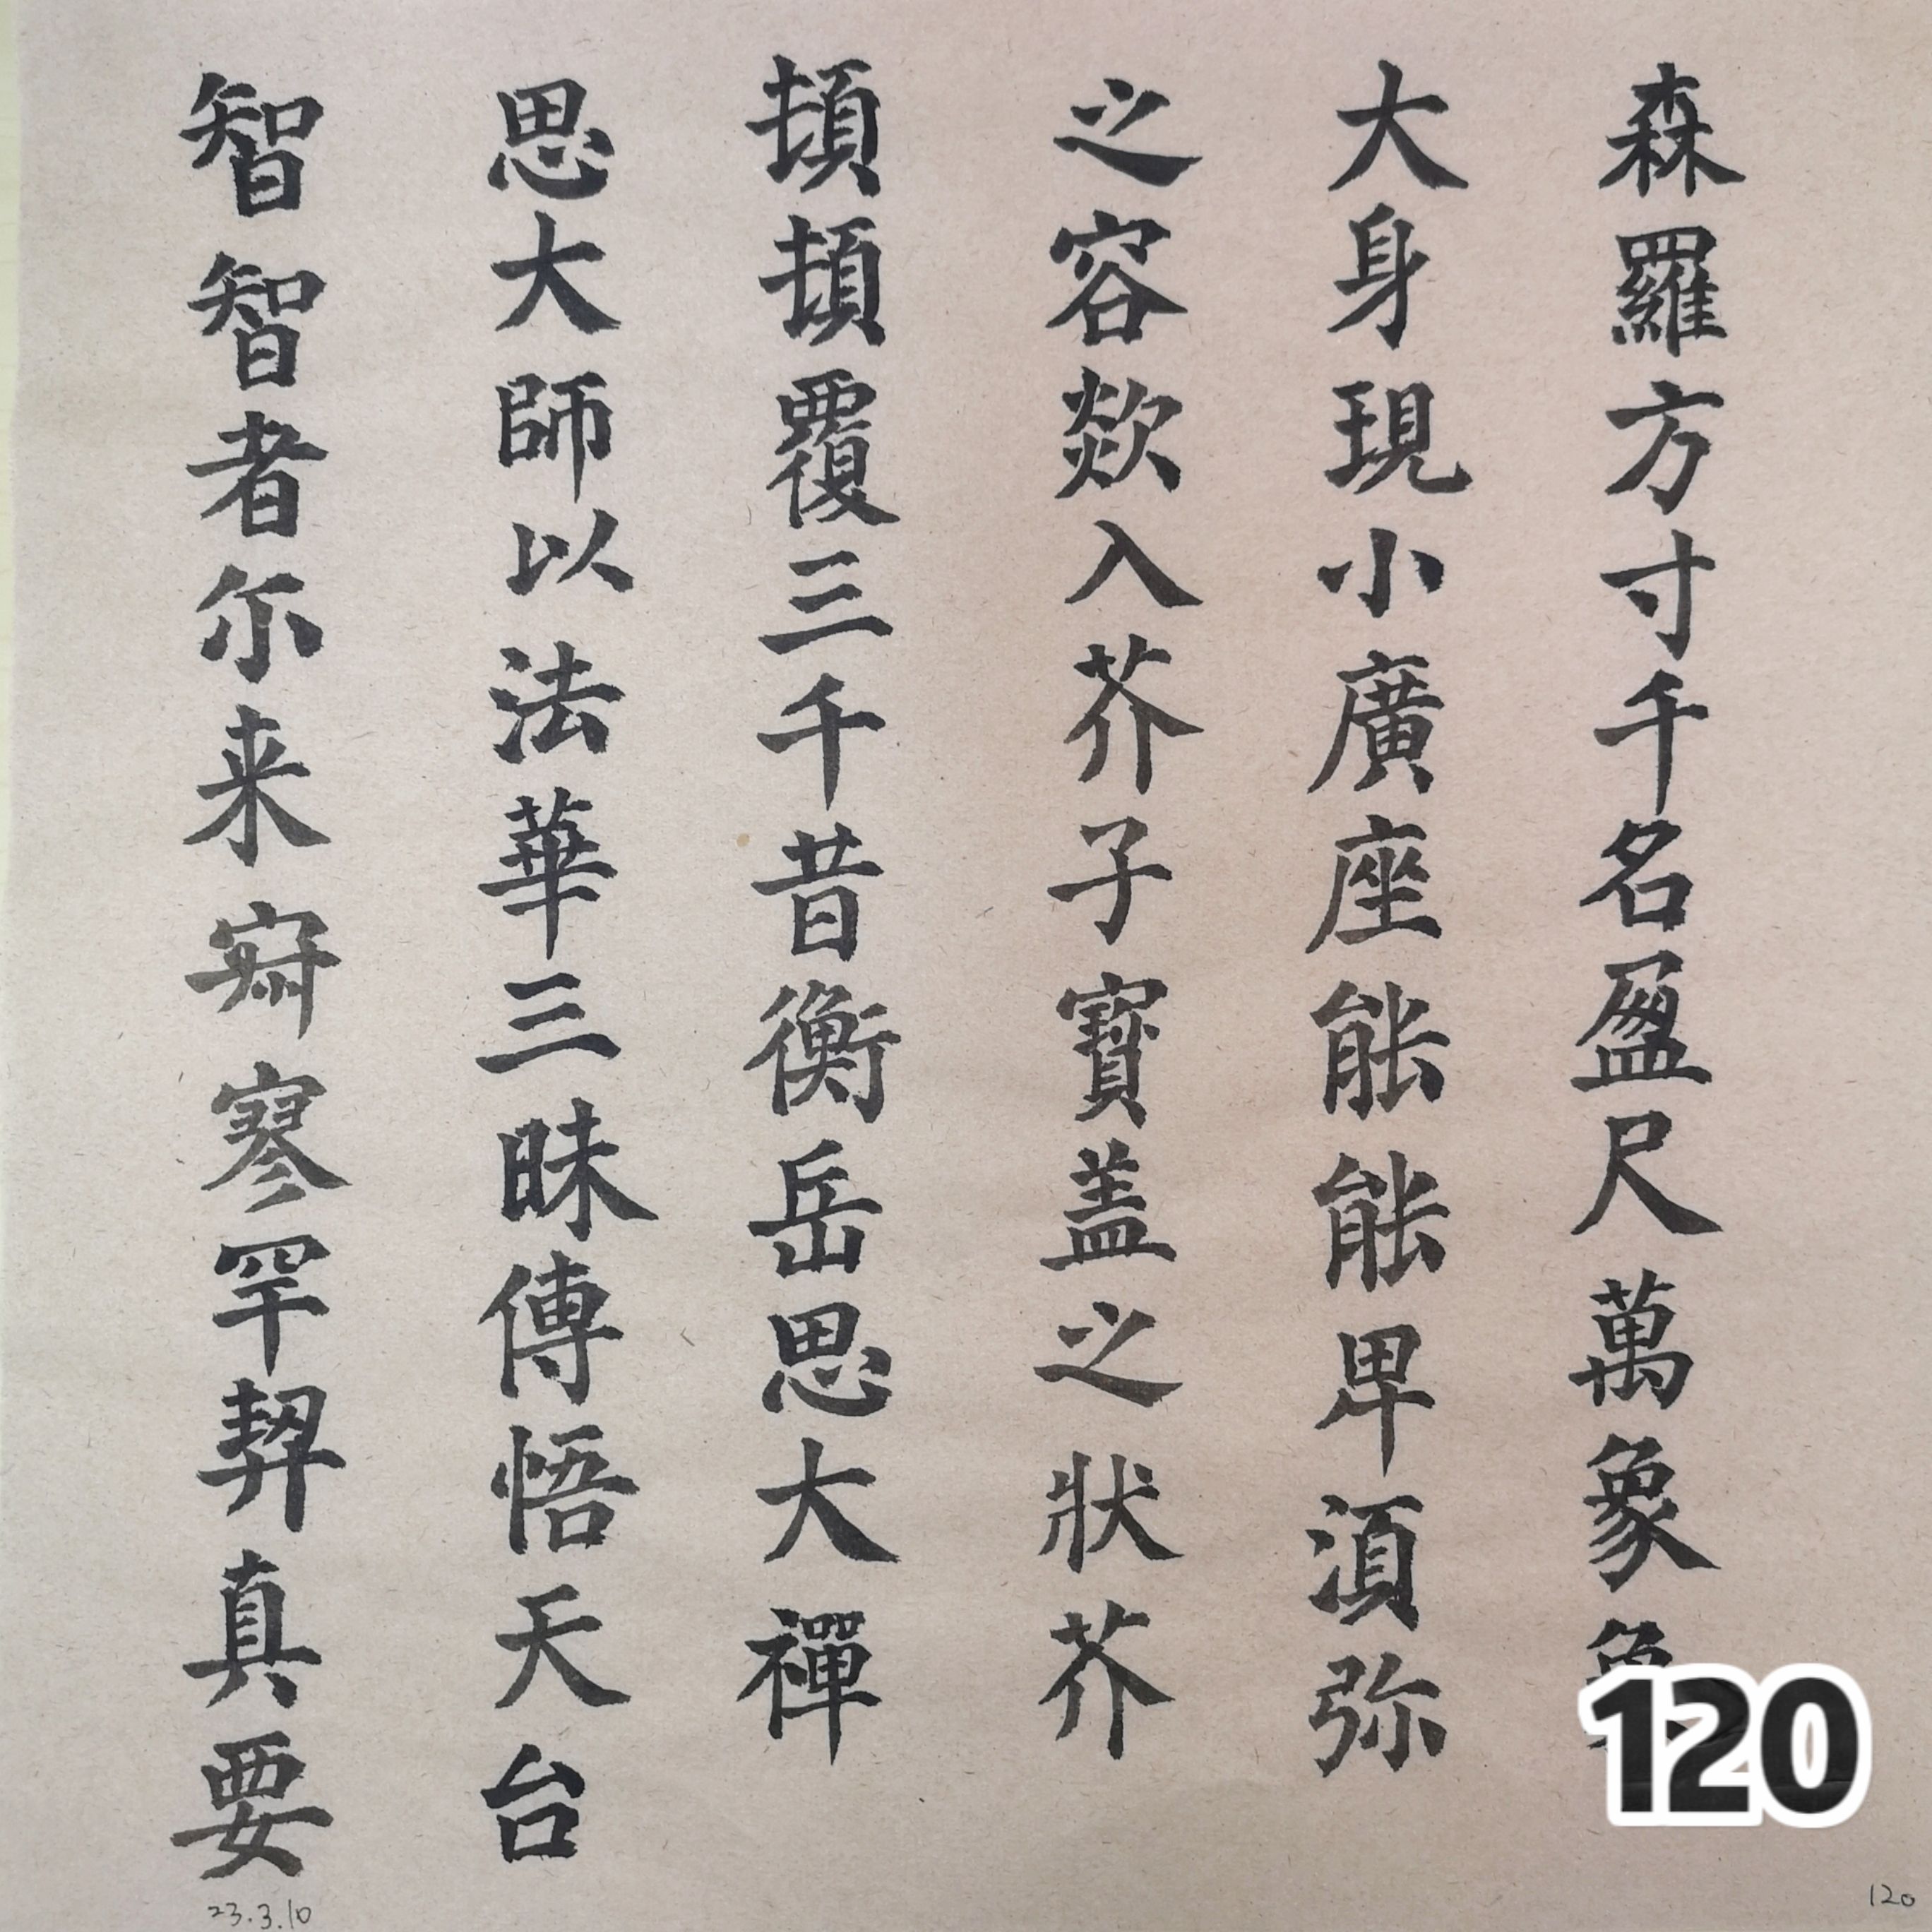 森羅方寸千名盈尺萬象象
大身現小廣座能能卑湏弥
之容欻入芥子寶蓋之狀芥
頓頓覆三千昔衡岳思大禪
思大師以法華三昧傳悟天台
智智者尔来寂寥罕契真要
120
23.3.10
120